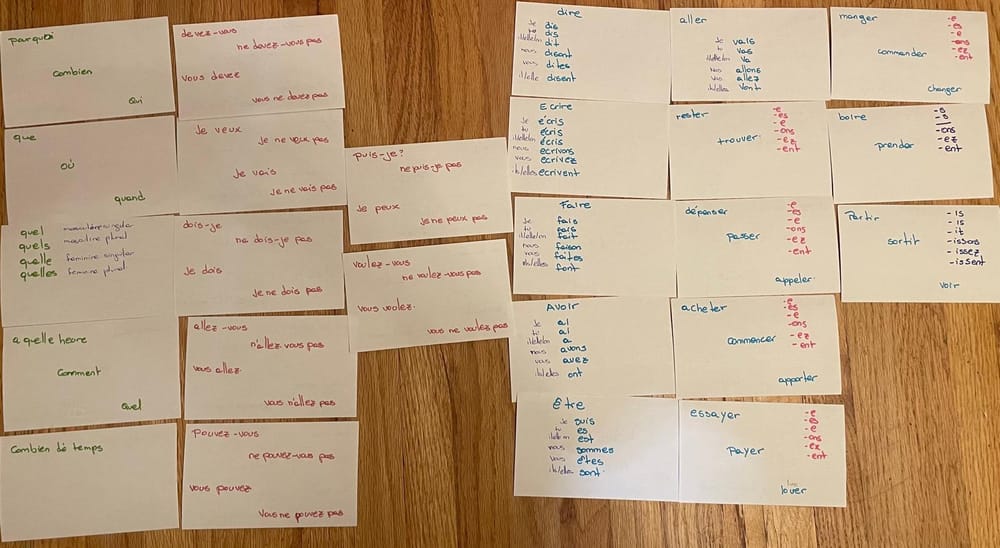 parquoi
combien
Qui
que
où
quand
quel masculine singular
quels masculine plural
quelle feminine singular
quelles feminine plural
a quelle heure
Comment
Quel
Combien de temps
devez-vous
ne devez-vous pas
vous devez
vous ne devez pas
Je veux
Je ne veux pas
Je vais
Je ne vais pas
dois-je
ne dois-je pas
Je dois
Je ne dois pas
allez-vous
n'allez vous pas
vous allez
vous n'allez pas
Pouvez-vous
ne pouvez-vous pas
vous pouvez
vous ne pouvez pas
puis-je?
ne puis-je pas
Je peux
Je ne peux pas
voulez-vous
ne voulez-vous pas
vous voulez
vous ne voulez pas
dire
Je dis
tu dis
il/elle/on dit
nous disent
vous dites
il/elle disent
Ecrire
Je écris
tu écris
il/elle/on écris
nous ecrivons
vous ecrivez
ils/elles ecrivent
Faire
Je fais
tu fais
il/elle/on fait
nous faison
vous faites
ils/elles font
Avoir
Je ai
tu ai
il/elle/on a
nous avons
vous avez
ils/elles ont
Être
Je suis
tu es
il/elle/on est
nous sommes
vous êtes
ils/elles sont
aller
Je vais
tu vas
il/elle/on va
nous allons
vous allez
ils/elles vont
rester
trouver
-e
-es
-e
-ons
-ez
-ent
dépenser
passer
appeler
-e
-es
-e
-ons
-ez
-ent
acheter
commencer
apporter
-e
-es
-e
-ons
-ez
-ent
essayer
payer
louer
-e
-es
-e
-ons
-ez
-ent
manger
commander
changer
-e
-es
-e
-ons
-ez
-ent
boire
prender
-s
-s
-ons
-ez
-ent
Partir
sortit
voir
-is
-is
-it
-issons
-issez
-issent